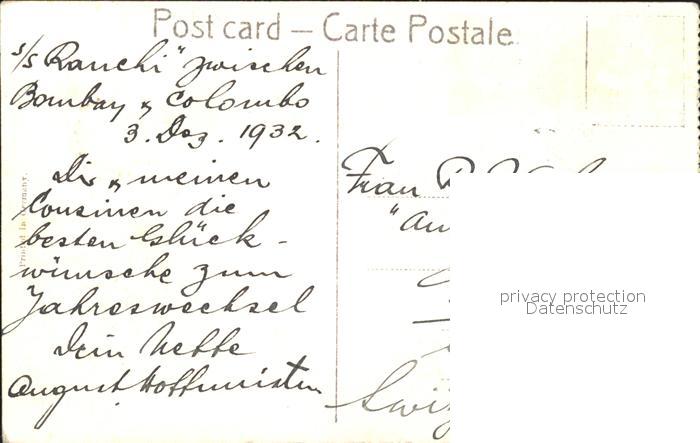 Post card – Carte Postale.
s/s "Ranchi" zwischen
Bombay & Colombo
3. Dez. 1932.
Dir & meinen
Cousinen die
besten Glück-
wünsche zum
Jahreswechsel
Dein Neffe
August
Frau
"Au
Printed in Germany.
privacy protection
Datenschutz